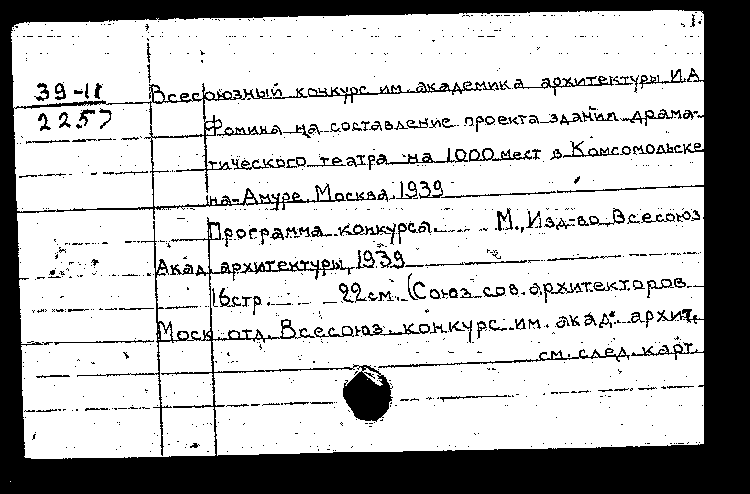 39-11
2257
Всесоюзный конкурс им. академика архитектуры И.А
Фомина на составление проекта здания драма-
тического театра на 1000 мест в Комсомольске
на-Амуре. Москва. 1939
Программа конкурса. М., Изд-во Всесоюз.
Акад. архитектуры, 1939
16стр. 22см. (Союз сов. архитекторов
Моск. отд. Всесоюз. конкурс им. акад. архит.
см. след. карт.